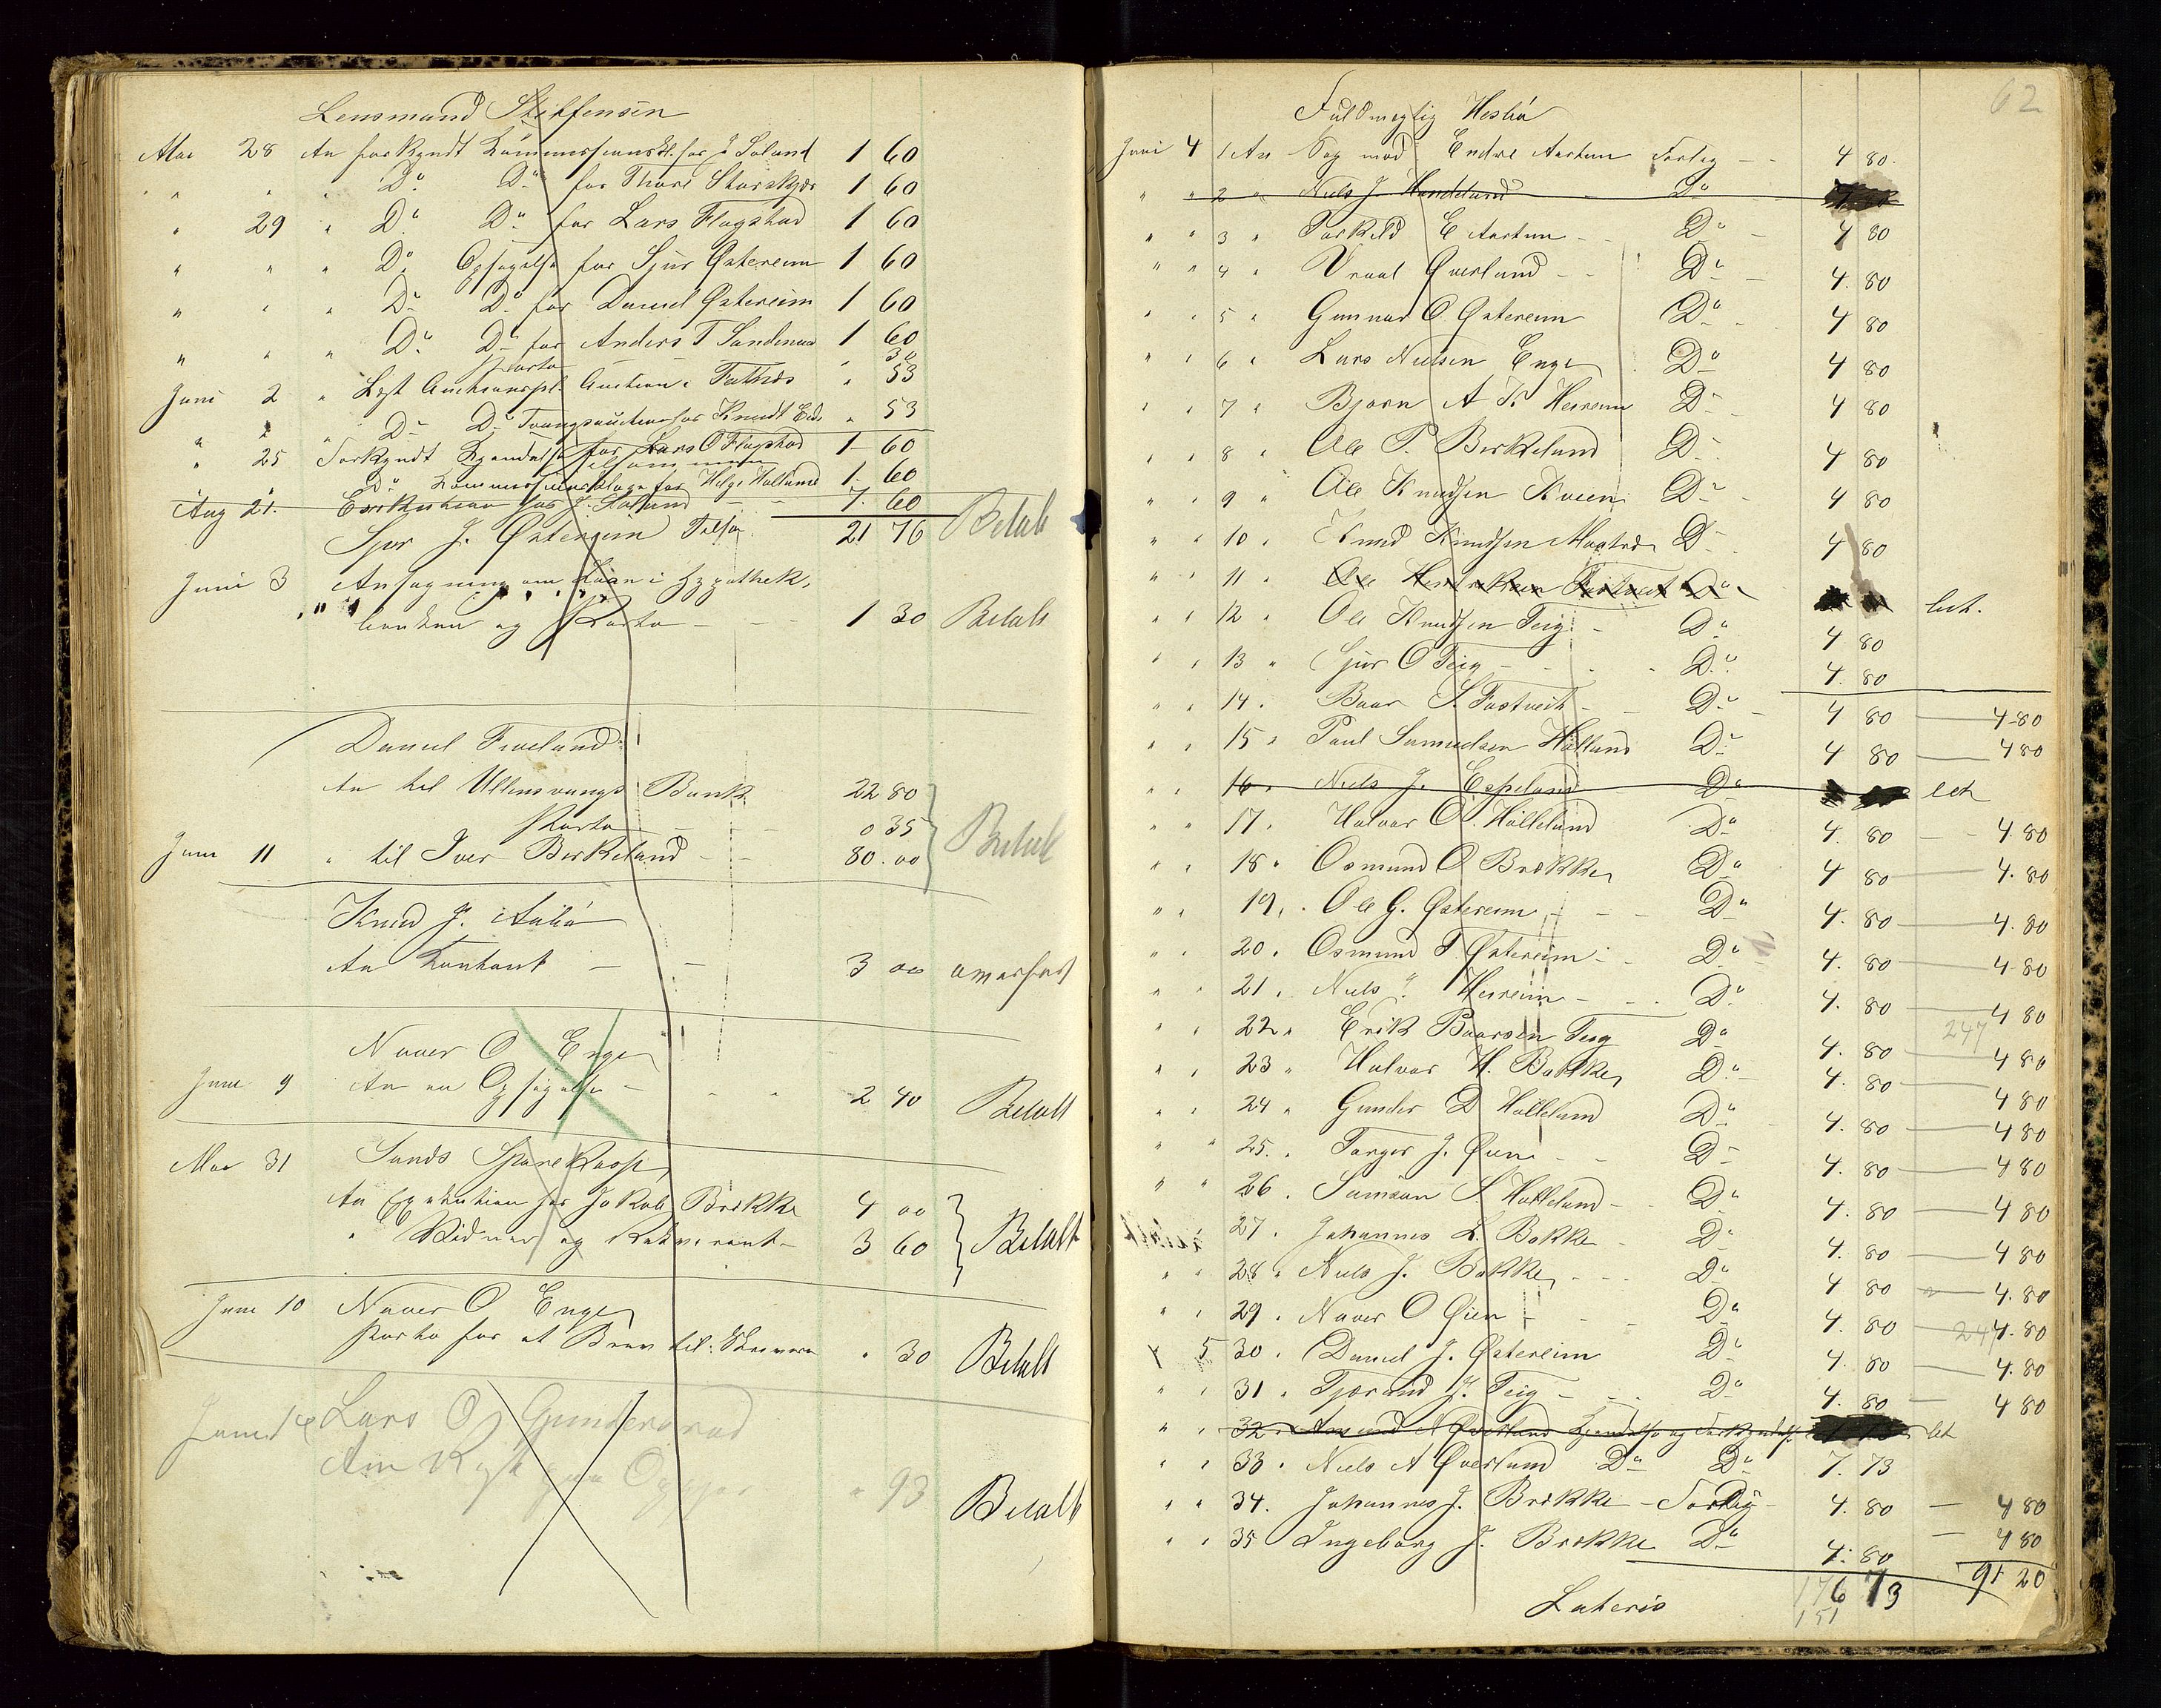 Lensmand Steffensen
Mai 28 An forkyndt Kommissionskl. for J Søland 1 60
" " " Do Do for Thore Storskjær 1 60
" 29 " Do Do for Lars Flogstad 1 60
" " " Do Opsigelse for Sjur Østereim 1 60
" " " Do Do for Daniel Østereim 1 60
" " " Do Do for Anders T Sandenes 1 60
Porto " 30
Juni 2 " Lyst Auctionspl. Auction " 53
" " " Do Do Tvangsauction for Knudt Eide " 53
" 25 Forkyndt Kjendelse for Lars O Flogstad 1 60
" " Do Kommissionsklage for Helge Hølland 1 60
Aug 21. Exekution hos J. Søland 7. 60
21 76 Betalt
Sjur J. Østereim
Juni 3 Ansøgning om Laan i Hypothek,
banken og Porto - - - 1 30 Betalt
Daniel Fiveland
An til Ullensvangs Bank 22 80
Porto - - - 0 35
Juni 11 " til Iver Birkeland - - 80.00 Betalt
Knud J. Aabø
An Kontant - - 3 00
Naver O Enge
Juni 9 An en Opsigelse - 2 40 Betalt
Mai 31 Sands Sparekasse
An Exekution hos Jakob Brekke 4 00
" Vidner og Rekvirent - 3 60 Betalt
Juni 10 Naver O Enge
Porto for et Brev til " 30 Betalt
Juni Lars O Gundersrud
An " 93 Betalt
62
Fuldmægtig Hesbø
Juni 4 1 An Sag mod Endre Aartun Forlig - - 4 80.
" " 2 " Niels J. Handeland Do
" " 3 " Torkild E Aartun - - Do - 4 80
" " 4 " Vraal Øverland - - Do - 4. 80
" " 5 " Gunnar O Østereim Do - 4 80
" " 6 " Lars Nielsen Enge Do 4 80
" " 7 " Bjørn A K Herreim Do 4 80
" " 8 " Ole P. Birkeland Do 4 80
" " 9 " Ole Knudsen Kveen Do - 4 80
" " 10 " Knud Knudsen Do 4 80
" " 11 " Ole Henriksen Fostveit Do bet.
" " 12 " Ole Knudsen Teig - Do 4 80
" " 13 " Sjur O Teig - - - Do 4. 80
" " 14. Baar S. Fostveit - - Do - 4 80 - 4-80
" " 15 " Paul Samuelsen Hølland Do 4 80 - 4 80
" " 16 " Niels J. Espeland Do bet
" " 17. Halvor O. Hølleland Do 4. 80 - 4.80
" " 18 " Osmund O Brekke Do 4 80 - 4. 80
" " 19. " Ole G. Østereim - - - Do 4. 80 - 4. 80
" " 20. Osmund T Østereim - - Do 4. 80 - 4-80
" " 21 . Niels " Herreim - - - Do 4. 80 - 4 80
247
" " 22 " Erik Baarsen Teig Do 4. 80 - 4 80
" " 23 " Halvor H. Bakke Do - 4. 80 - 4 80
" " 24 " Gunder D Hølleland Do 4. 80 - 4 80
" " 25. . Torger J. Øien - - Do 4. 80 - 4 80
" " 26 . Samson S. Hølleland - Do 4. 80 - 4 80
" 27 . Johannes L. Bakke - Do 4. 80 - 4 80
" " 28 " Niels J. Bakke - - - Do 4 80 - 4. 80
" " 29 . Naver O Øien - - - Do 4. 80 - 4. 80
" 5 30 . Daniel J. Østereim Do 4. 80 - 4. 80
" " 31 . Tjorand J. Teig - - - Do 4. 80 - 4 80
" " 32 " Amund N Øverland Kjendelse og Forkyndelse bet
" " 33 . Niels A Øverland Do Do 7. 73
" " 34. Johannes J. Brekke - Forlig - 4. 80 - 4 80
" " 35 Ingeborg J. Brekke Do 4. 80 - 4 80
Lateris 176 73 91 20
151